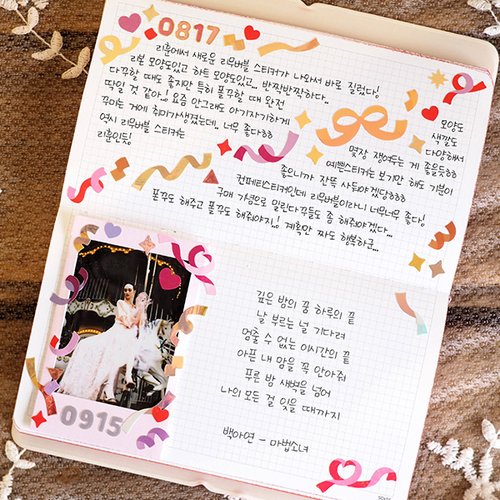 0817
리훈에서 새로운 리무버블 스티커가 나와서 바로 질렀다!
리본 모양도있고 하트 모양도있고.. 반짝반짝하다..
다꾸할 때도 좋지만 특히 폴꾸할 때 완전
딱일 것 같아..! 요즘 안그래도 아기자기하게
꾸미는 거에 취미가생겼는데.. 너무 좋다ㅎㅎ
역시 리무버블 스티커는
리훈인듯!
모양도
색깔도
다양해서
몇장 쟁여두는 게 좋을듯ㅎㅎ
예쁜스티커는 보기만 해도 기분이
좋으니까 잔뜩 사둬야겠당ㅎㅎㅎ
컨페티스티커인데 리무버블이라니 너무너무 좋다!
구매 기념으로 밀린다꾸들도 좀 해줘야겠다...
폰꾸도 해주고 폴꾸도 해줘야지..! 계획만 짜도 행복하군...
0915
깊은 밤의 꿈 하루의 끝
날 부르는 널 기다려
멈출 수 없는 이시간의 끝
아픈 내 맘을 꼭 안아줘
푸른 밤 새벽을 넘어
나의 모든 걸 잊을 때까지
백아연 - 마법소녀